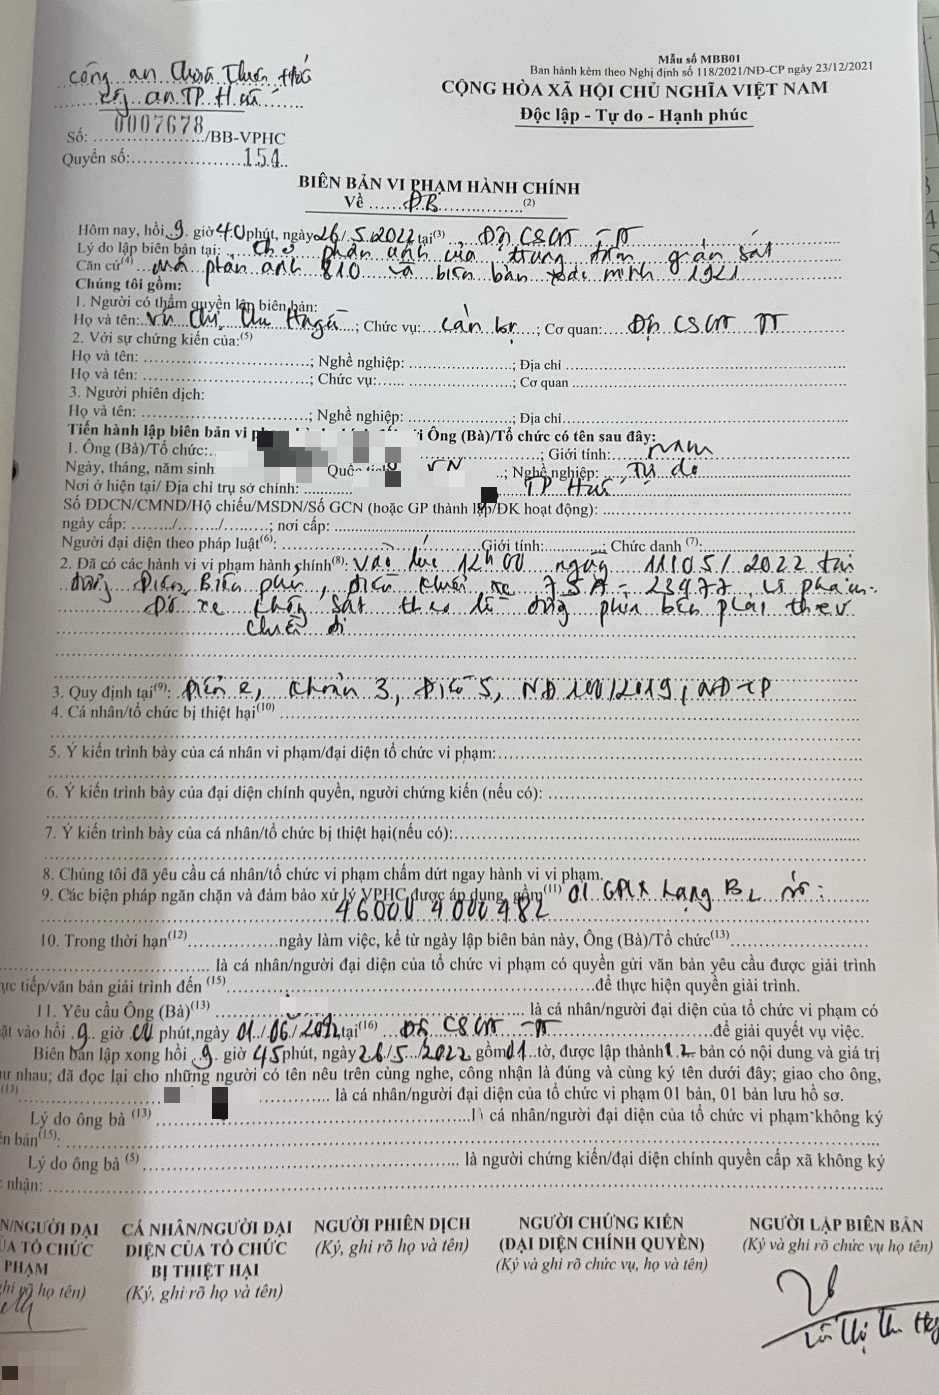 Mẫu số MBB01
Ban hành kèm theo Nghị định số 118/2021/NĐ-CP ngày 23/12/2021
công an Thừa Thiên Huế
CỘNG HÒA XÃ HỘI CHỦ NGHĨA VIỆT NAM
an TP Huế
Độc lập - Tự do - Hạnh phúc
Số: 0007678/BB-VPHC
Quyển số: 154
BIÊN BẢN VI PHẠM HÀNH CHÍNH
Về ĐB (2)
Hôm nay, hồi 9 giờ 40 phút, ngày 26/5/2022 tại(3) Đội CSGT - TT
Lý do lập biên bản tại: phản ánh của trung tâm giám sát
Căn cứ(4) mã phản ánh 810 và biên bản xác minh 1921
Chúng tôi gồm:
1. Người có thẩm quyền lập biên bản:
Họ và tên: Vũ Thị Thu ; Chức vụ: cán bộ ; Cơ quan: Đội CSGT TT
2. Với sự chứng kiến của:(5)
Họ và tên: ; Nghề nghiệp: ; Địa chỉ
Họ và tên: ; Chức vụ: ; Cơ quan
3. Người phiên dịch:
Họ và tên: ; Nghề nghiệp: ; Địa chỉ
Tiến hành lập biên bản vi Ông (Bà)/Tổ chức có tên sau đây:
1. Ông (Bà)/Tổ chức: ; Giới tính: nam
Ngày, tháng, năm sinh Quốc VN ; Nghề nghiệp: Tự do
Nơi ở hiện tại/ Địa chỉ trụ sở chính: TP Huế
Số ĐDCN/CMND/Hộ chiếu/MSDN/Số GCN (hoặc GP thành lập/ĐK hoạt động):
ngày cấp: / / ; nơi cấp:
Người đại diện theo pháp luật(6): Giới tính: ; Chức danh (7):
2. Đã có các hành vi vi phạm hành chính(8): vào lúc 12h00 ngày 11/05/2022 tại
đường Điện Biên Phủ, điều khiển xe 75A-23977 vi phạm
Đỗ xe không sát theo lề đường phía bên phải theo
chiều đi
3. Quy định tại(9): Điểm e, khoản 3, Điều 5, NĐ 100/2019/NĐ-CP
4. Cá nhân/tổ chức bị thiệt hại(10)
5. Ý kiến trình bày của cá nhân vi phạm/đại diện tổ chức vi phạm:
6. Ý kiến trình bày của đại diện chính quyền, người chứng kiến (nếu có):
7. Ý kiến trình bày của cá nhân/tổ chức bị thiệt hại(nếu có):
8. Chúng tôi đã yêu cầu cá nhân/tổ chức vi phạm chấm dứt ngay hành vi vi phạm.
9. Các biện pháp ngăn chặn và đảm bảo xử lý VPHC được áp dụng, gồm(11) 01 GPLX hạng B2 số:
46000 4000482
10. Trong thời hạn(12) ngày làm việc, kể từ ngày lập biên bản này, Ông (Bà)/Tổ chức(13)
là cá nhân/người đại diện của tổ chức vi phạm có quyền gửi văn bản yêu cầu được giải trình
ực tiếp/văn bản giải trình đến (15) để thực hiện quyền giải trình.
11. Yêu cầu Ông (Bà)(13) là cá nhân/người đại diện của tổ chức vi phạm có
ặt vào hồi 9 giờ 00 phút, ngày 01/06/2022, tại(16) Đội CSGT - TT để giải quyết vụ việc.
Biên bản lập xong hồi 9 giờ 45 phút, ngày 26/5/2022 gồm 01 tờ, được lập thành bản có nội dung và giá trị
ư nhau; đã đọc lại cho những người có tên nêu trên cùng nghe, công nhận là đúng và cùng ký tên dưới đây; giao cho ông,
(13) là cá nhân/người đại diện của tổ chức vi phạm 01 bản, 01 bản lưu hồ sơ.
Lý do ông bà (13) là cá nhân/người đại diện của tổ chức vi phạm không ký
ên bản(15):
Lý do ông bà (5) là người chứng kiến/đại diện chính quyền cấp xã không ký
nhận:
N/NGƯỜI ĐẠI
ỦA TỔ CHỨC
PHẠM
ghi rõ họ tên)
CÁ NHÂN/NGƯỜI ĐẠI
DIỆN CỦA TỔ CHỨC
BỊ THIỆT HẠI
(Ký, ghi rõ họ và tên)
NGƯỜI PHIÊN DỊCH
(Ký, ghi rõ họ và tên)
NGƯỜI CHỨNG KIẾN
(ĐẠI DIỆN CHÍNH QUYỀN)
(Ký và ghi rõ chức vụ, họ và tên)
NGƯỜI LẬP BIÊN BẢN
(Ký và ghi rõ chức vụ họ tên)
Vũ Thị Thu